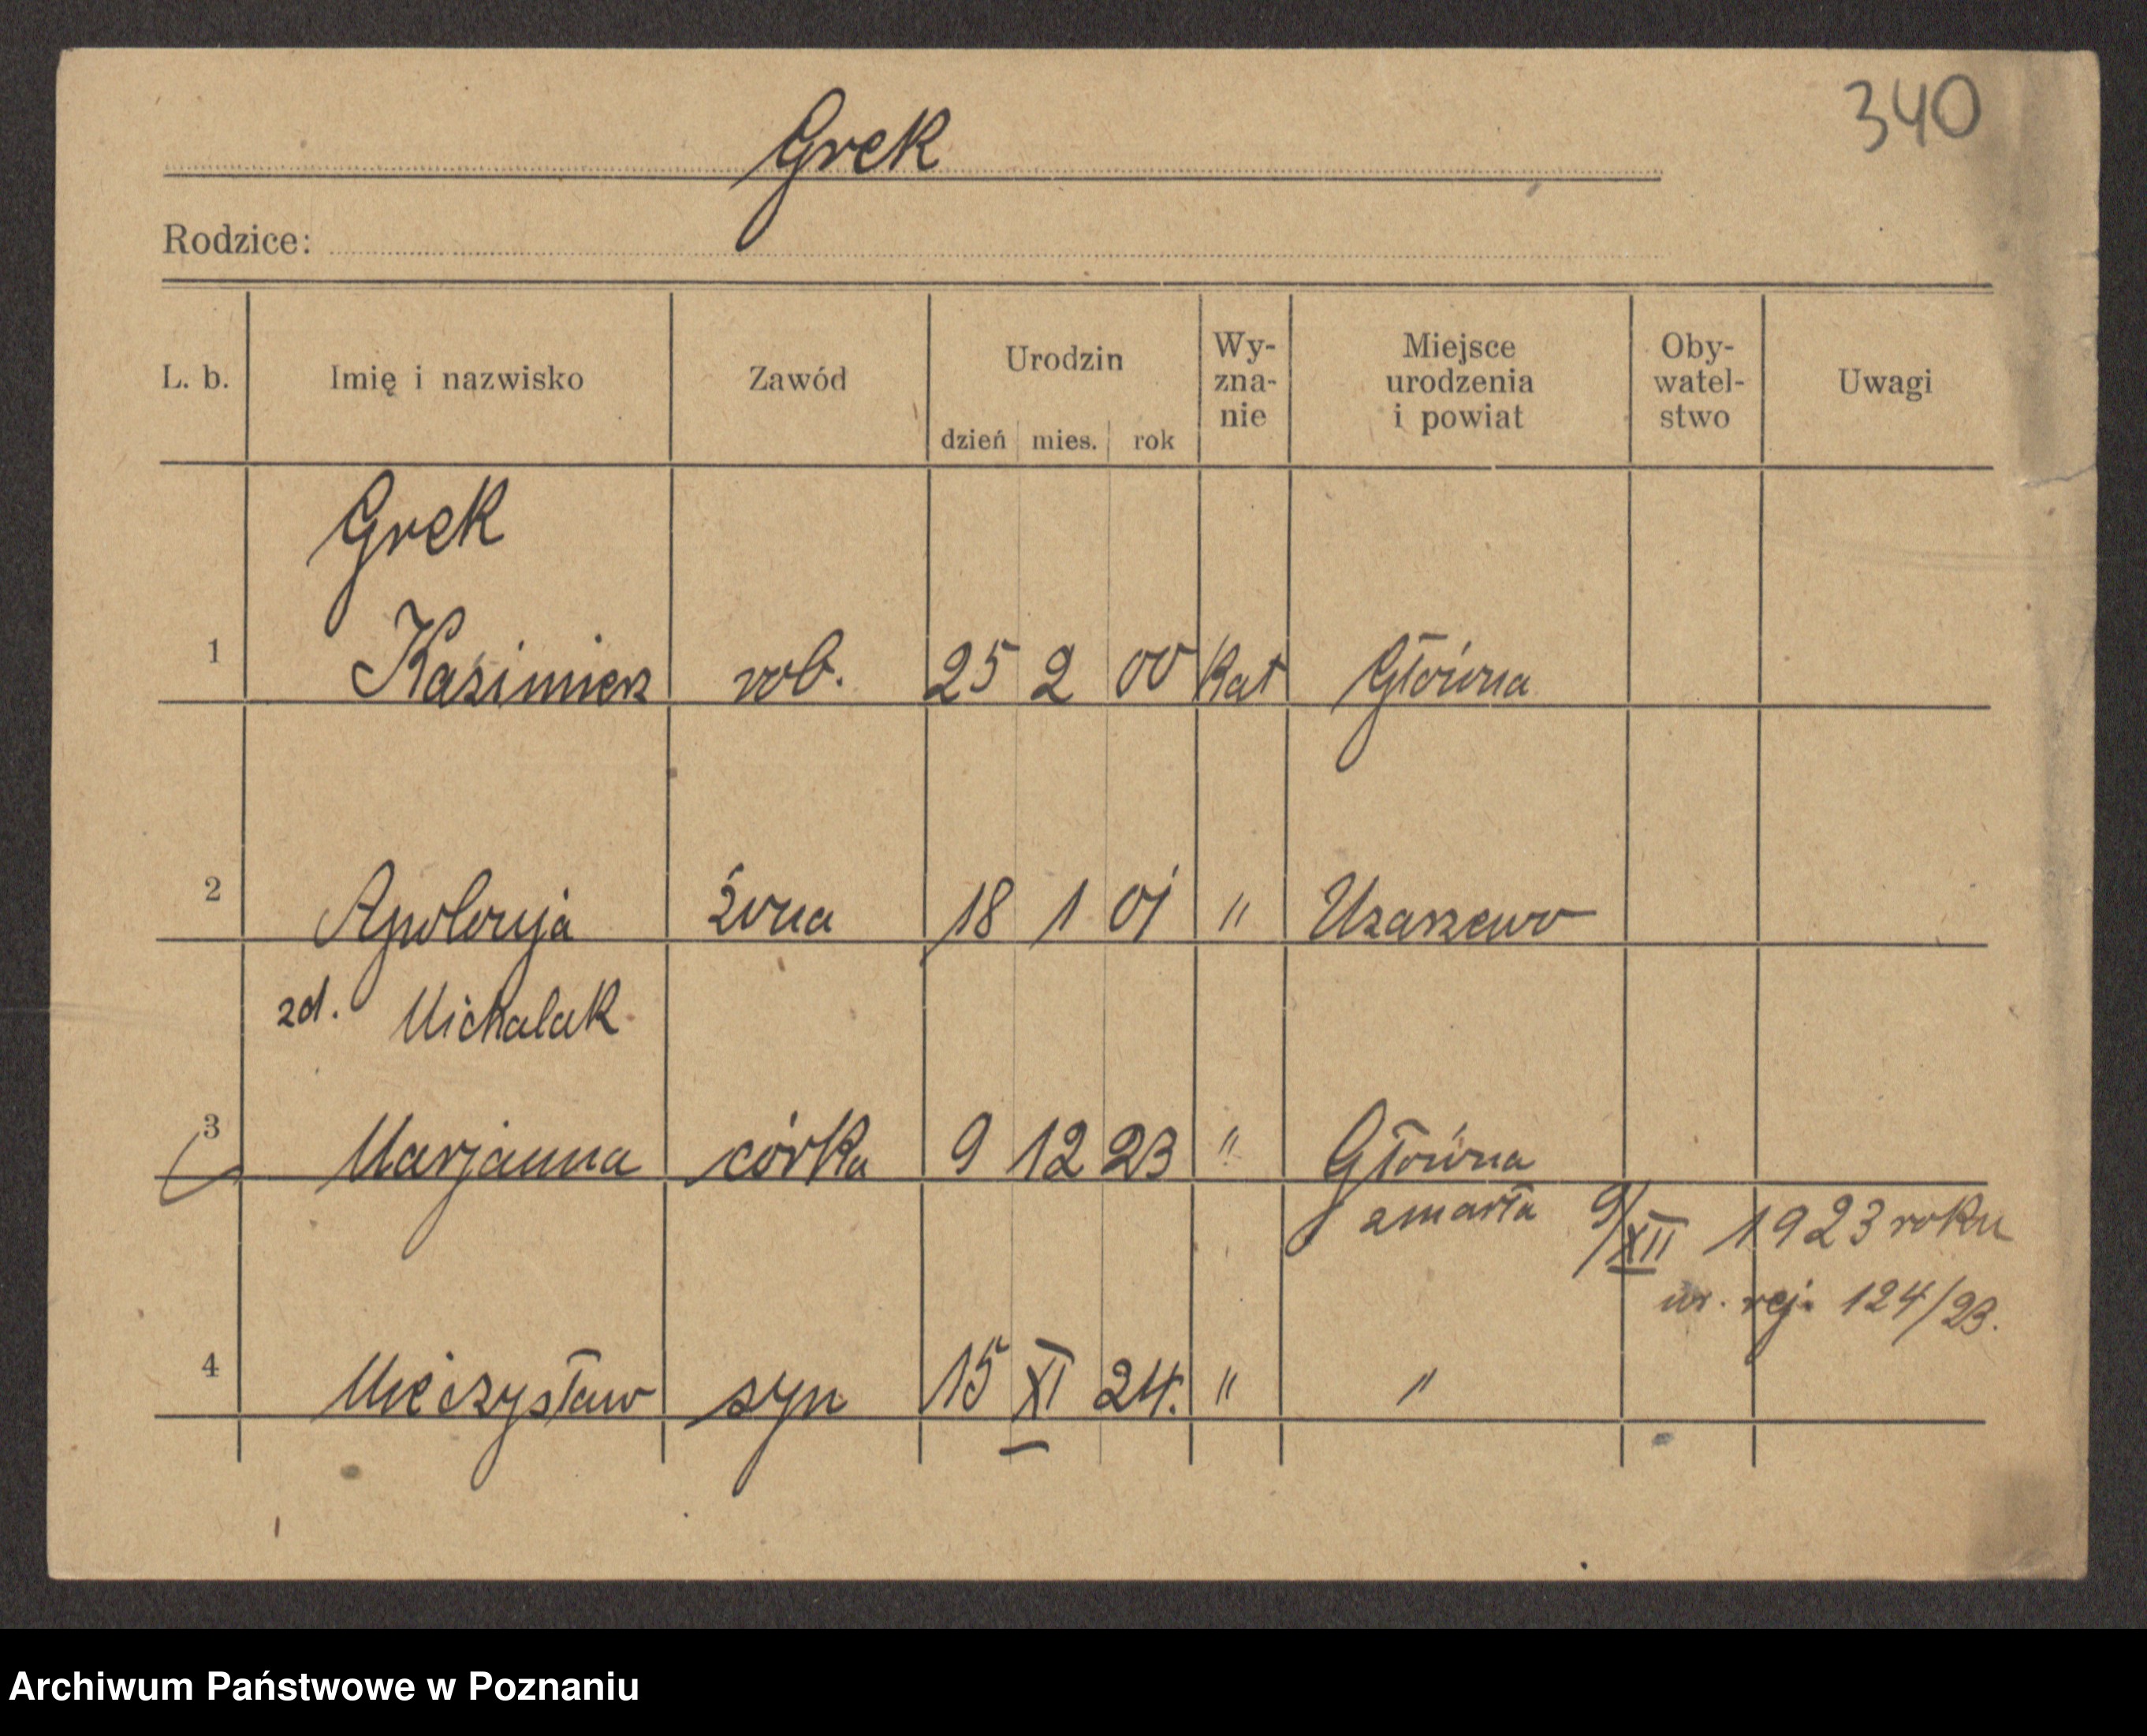 340
Grek
Rodzice:
L. b. Imię i nazwisko Zawód Urodzin dzień mies. rok Wy-zna-nie Miejsce urodzenia i powiat Oby-watel-stwo Uwagi
Grek
1 Kazimierz rob. 25 2 00 Kat Główna
2 Apolonja żona 18 1 01 " Uzarzewo
zd. Michalak
3 Marjanna córka 9 12 23 " Główna
zmarła 9/XII 1923 roku
nr. rej. 124/23.
4 Mieczysław syn 15 XI 24. " "
Archiwum Państwowe w Poznaniu